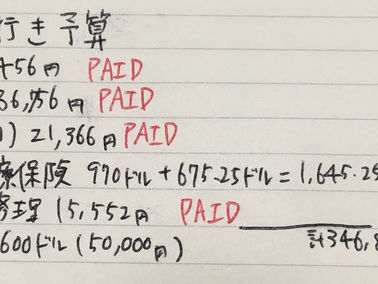 行き予算
456円 PAID
36,756円 PAID
) 21,366円 PAID
療保険 970ドル + 675.25ドル = 1,645.25
修理 15,552円 PAID
600ドル (50,000円) 計346,8